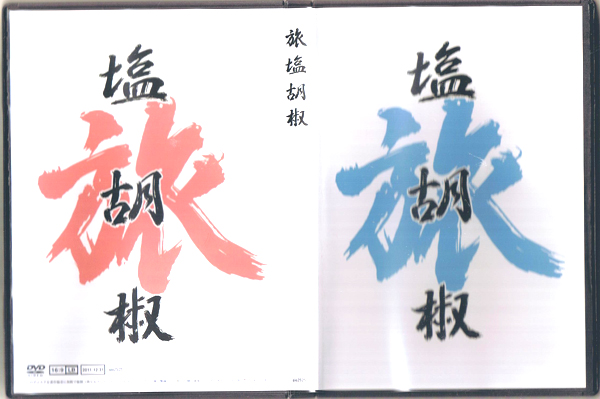 塩
旅
胡
椒
旅塩胡椒
塩
旅
胡
椒
DVD
16:9 LB